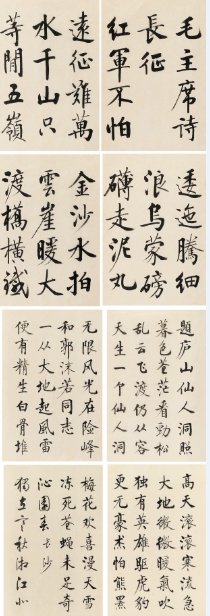 毛主席诗
長征
紅軍不怕
遠征難萬
水千山只
等閒五嶺
逶迤騰細
浪烏蒙磅
礴走泥丸
金沙水拍
雲崖暖大
渡橋橫鐵
題庐山仙人洞照
暮色苍茫看勁松
乱云飞渡仍从容
天生一个仙人洞
无限风光在险峰
和郭沫若同志
一从大地起風雷
便有精生白骨堆
高天滚滚寒流急
大地微微暖氣吹
独有英雄驱虎豹
更无豪杰怕熊羆
梅花欢喜漫天雪
冻死苍蝇未足奇
沁園春 长沙
獨立寒秋湘江北